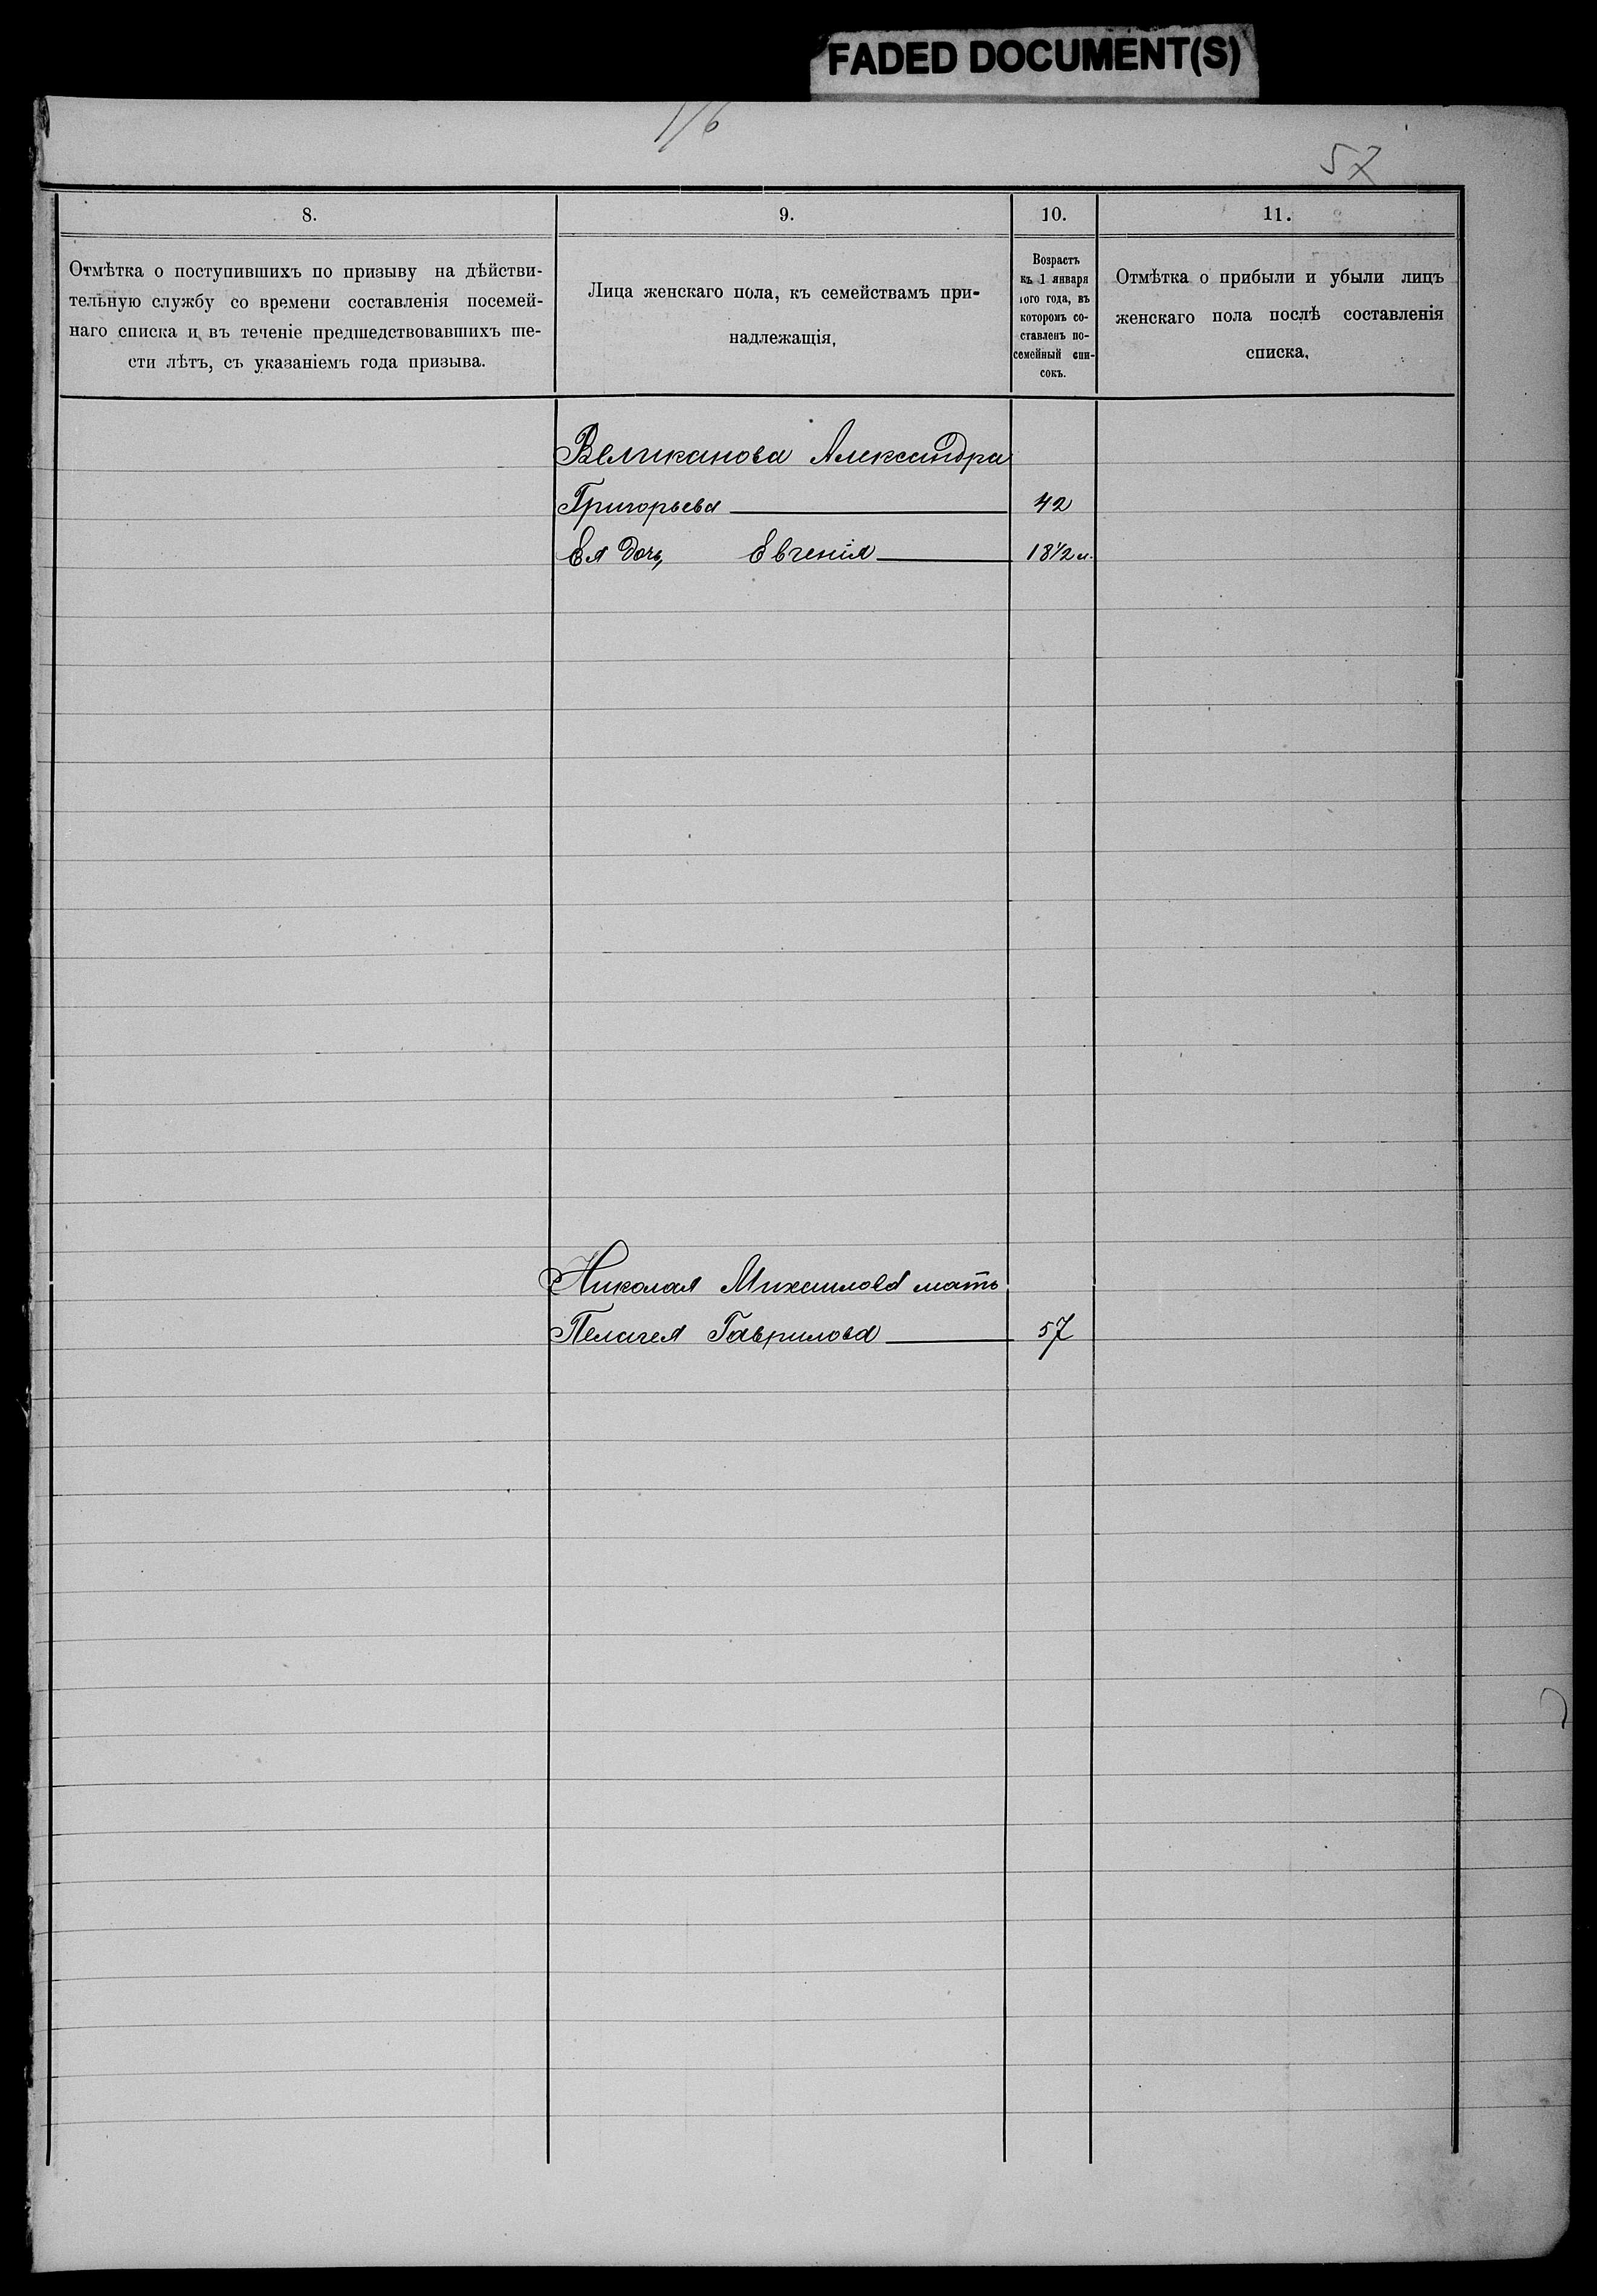 FADED DOCUMENT(S)
116
57
8.
9.
10.
11.
Отмѣтка о поступившихъ по призыву на дѣйстви-
тельную службу со времени составленія посемей-
наго списка и въ теченіе предшедствовавшихъ ше-
сти лѣтъ, съ указаніемъ года призыва.
Лица женскаго пола, къ семействамъ при-
надлежащія,
Возрастъ
къ 1 января
того года, въ
которомъ со-
ставленъ по-
семейный спи-
сокъ.
Отмѣтка о прибыли и убыли лицъ
женскаго пола послѣ составленія
списка.
Великанова Александра
Григорьева 42
Ея дочь, Евгенія 1 8½ м.
Николая Михаилова мать
Пелагея Гаврилова 57